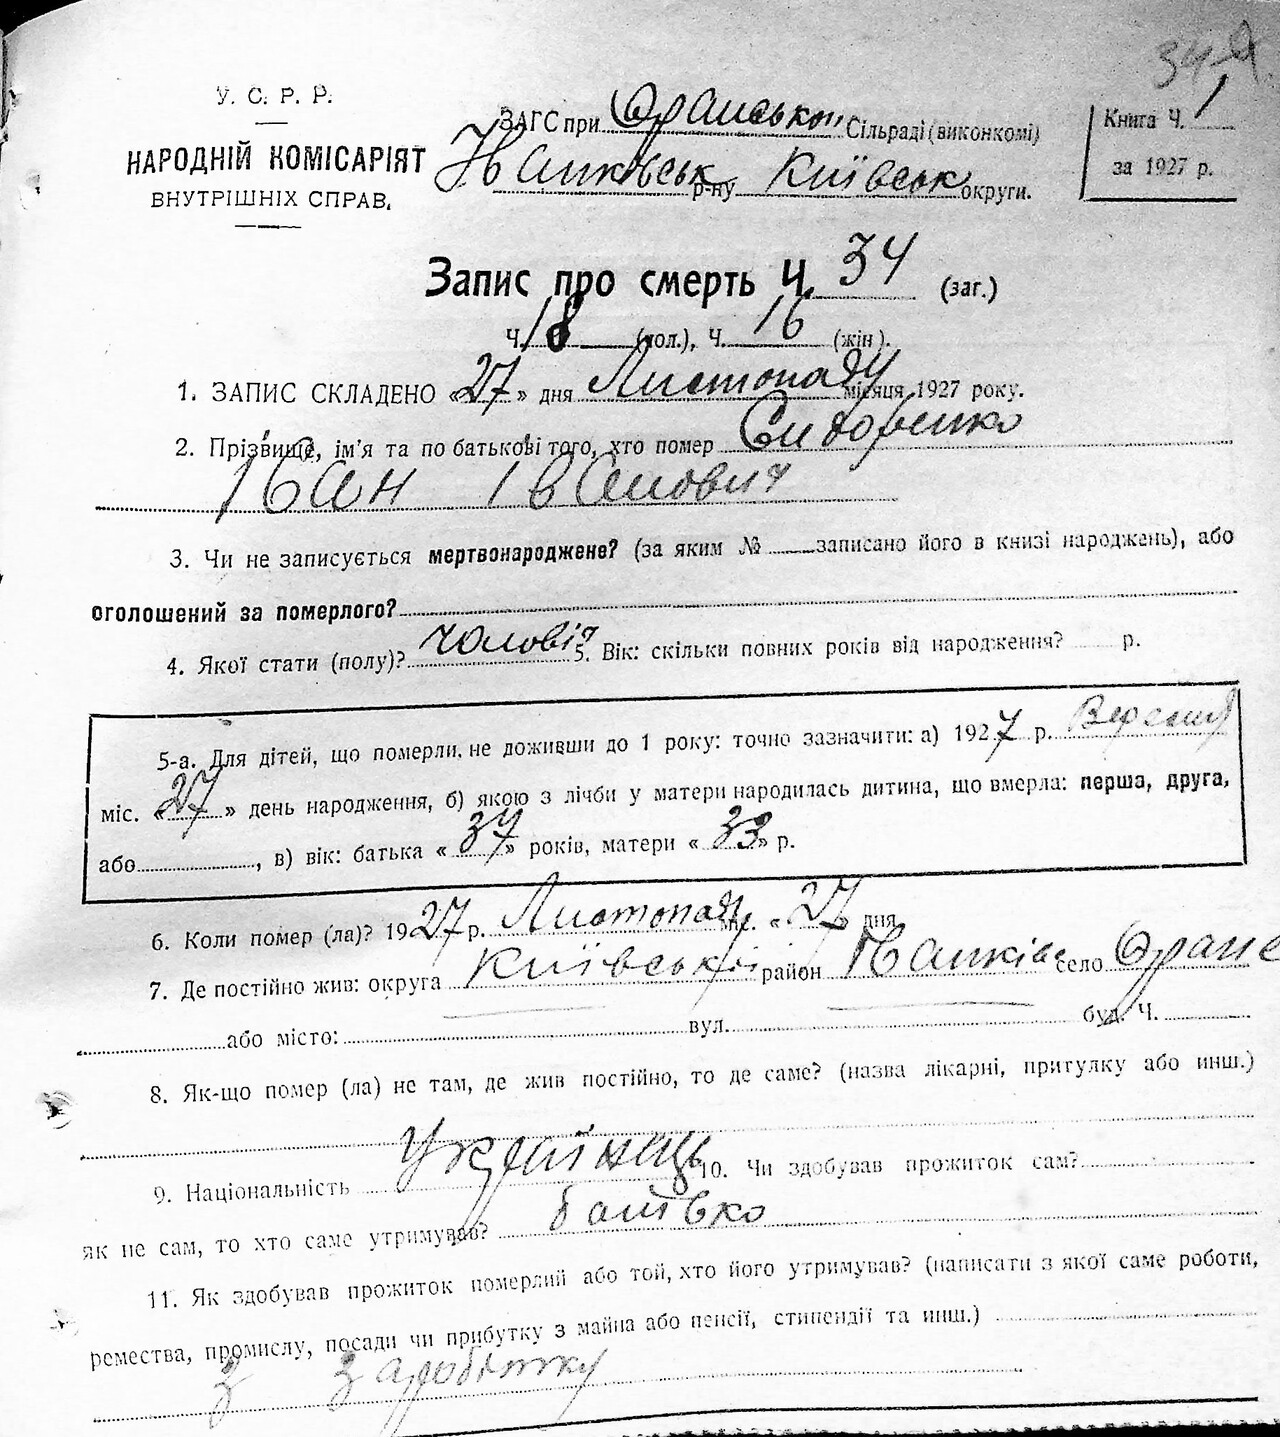 34
У. С. Р. Р.
НАРОДНІЙ КОМІСАРІЯТ
ВНУТРІШНІХ СПРАВ.
ЗАГС при Оранській Сільраді (виконкомі)
р-ну Київськ округи.
Книга Ч. 1
за 1927 р.
Запис про смерть Ч. 34 (заг.)
Ч. 18 (пол.), Ч. 16 (жін).
1. ЗАПИС СКЛАДЕНО «27» дня Листопаду місяця 1927 року.
2. Прізвище, ім'я та по батькові того, хто помер Сидоренко
Іван Іванович
3. Чи не записується мертвонароджене? (за яким № записано його в книзі народжень), або
оголошений за померлого?
4. Якої стати (полу)? чоловіч 5. Вік: скільки повних років від народження? р.
5-а. Для дітей, що померли, не доживши до 1 року: точно зазначити: а) 1927 р. Вересня
міс. «27» день народження, б) якою з лічби у матери народилась дитина, що вмерла: перша, друга,
або , в) вік: батька «37» років, матери «33» р.
6. Коли помер (ла)? 1927 р. Листопаду міс. «27» дня
7. Де постійно жив: округа Київській район село Оране
або місто: вул. буд. Ч.
8. Як-що помер (ла) не там, де жив постійно, то де саме? (назва лікарні, притулку або инш.)
9. Національність Українець 10. Чи здобував прожиток сам?
як не сам, то хто саме утримував? батько
11. Як здобував прожиток померлий або той, хто його утримував? (написати з якої саме роботи,
ремества, промислу, посади чи прибутку з майна або пенсії, стипендії та инш.)
з заробітку